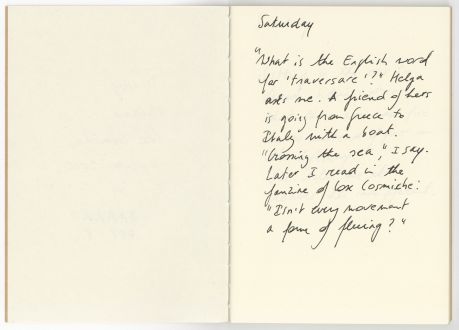 Saturday
"What is the English word
for 'traversare'?" Helga
asks me. A friend of hers
is going from Greece to
Italy with a boat.
"Crossing the sea," I say.
Later I read in the
fanzine of Vox Cosmiche:
"Isn't every movement
a form of fleeing?"